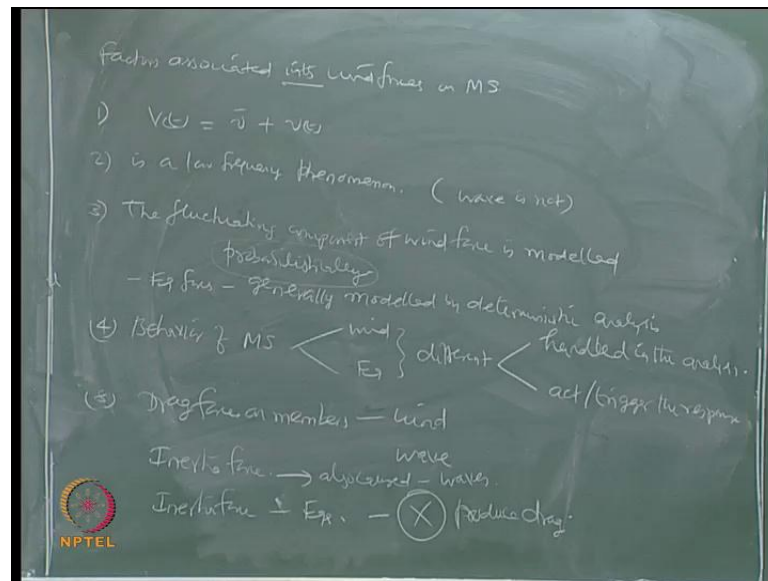 Factors associated with wind forces on MS
1) V(t) = v̄ + v(t)
2) is a low frequency phenomenon. (wave is not)
3) The fluctuating component of wind force is modelled
probabilistically
- EQ forces - generally modelled by deterministic analysis
(4) Behavior of MS wind EQ } different handled in the analysis.
act/trigger the response
(5) Drag force on members - wind
wave
Inertia force → also caused - waves.
Inertia force - EQs. - X produce drag.
NPTEL